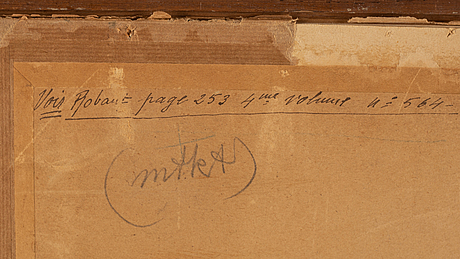 Voir Robaut page 253 4me volume No 564-